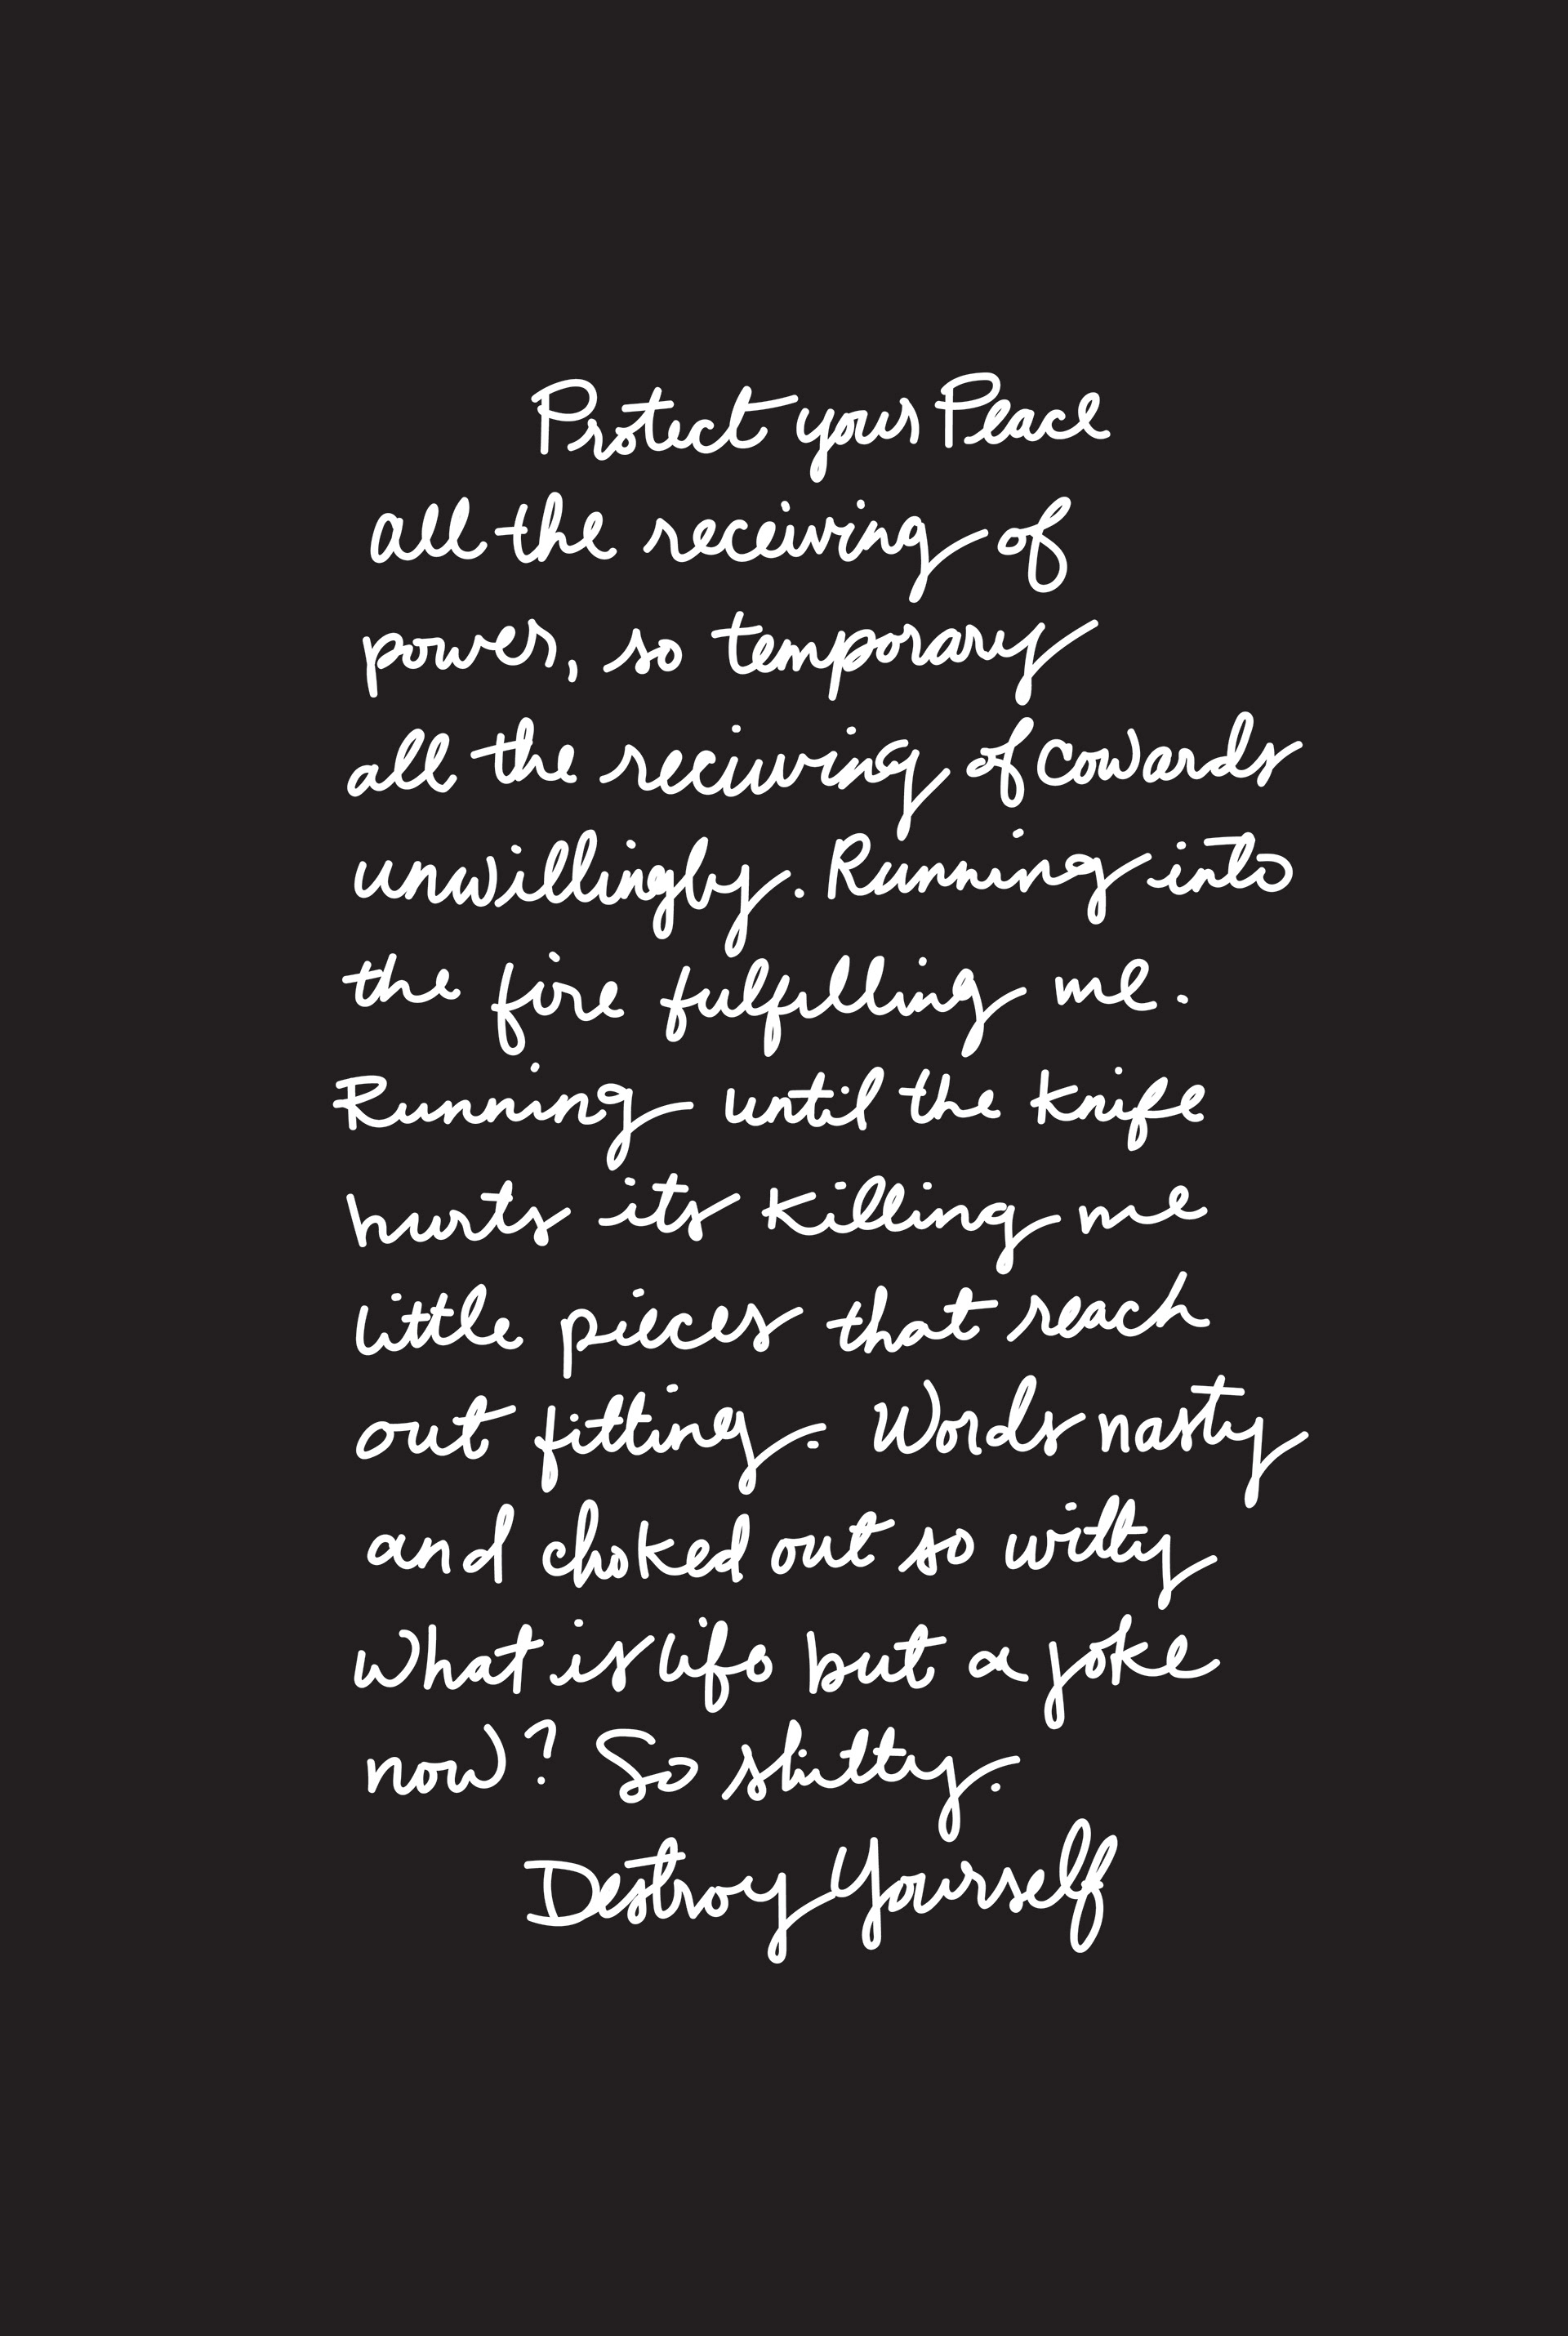 Protect your Peace
all the receiving of
power, so temporary
all the receiving of cowards
unwillingly. Running into
the fire fulfilling me.
Running until the knife
hurts its killing me
little pieces that reach
out fitting. Words natty
and choked out so witty
What is life but a joke
now? So shitty.
Destroy Yourself